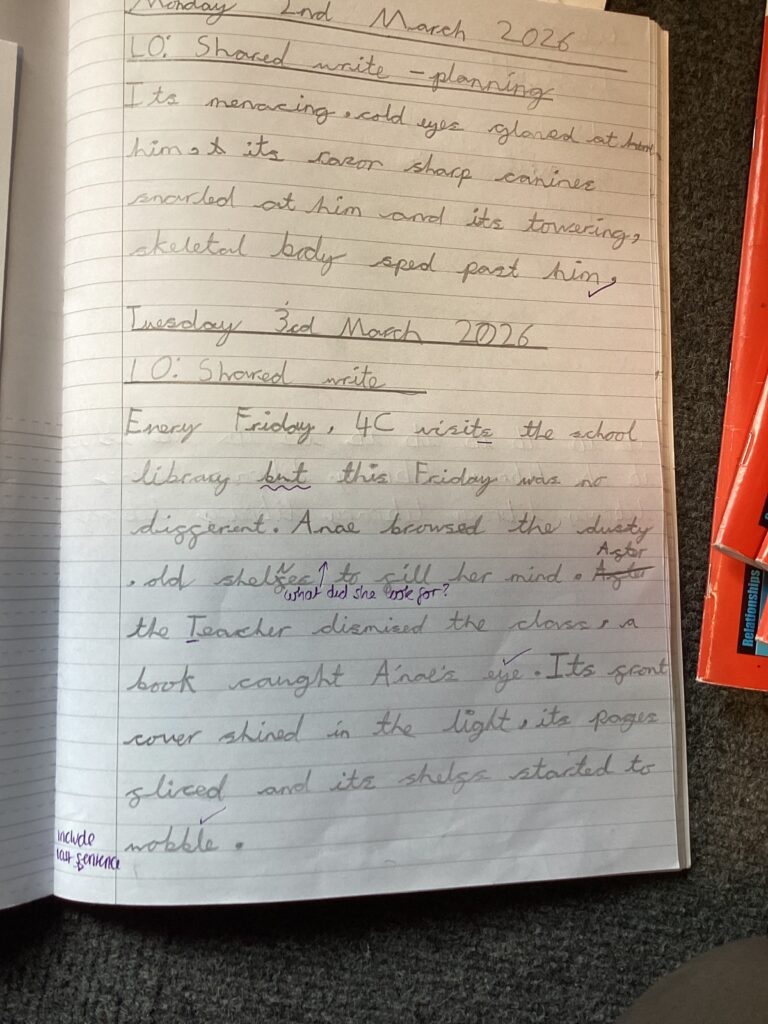 Monday 2nd March 2026
LO: Shared write - planning
Its menacing, cold eyes glared at
him, its razor sharp canines
snarled at him and its towering,
skeletal body sped past him.
Tuesday 3rd March 2026
LO: Shared write
Every Friday, 4C visits the school
library but this Friday was no
different. Anae browsed the dusty
After
, old shelfes to fill her mind. After
what did she look for?
the Teacher dismised the class, a
book caught Anae's eye. Its front
cover shined in the light, its pages
fliced and its shelfs started to
wobble.
include
last sentence
Relationships